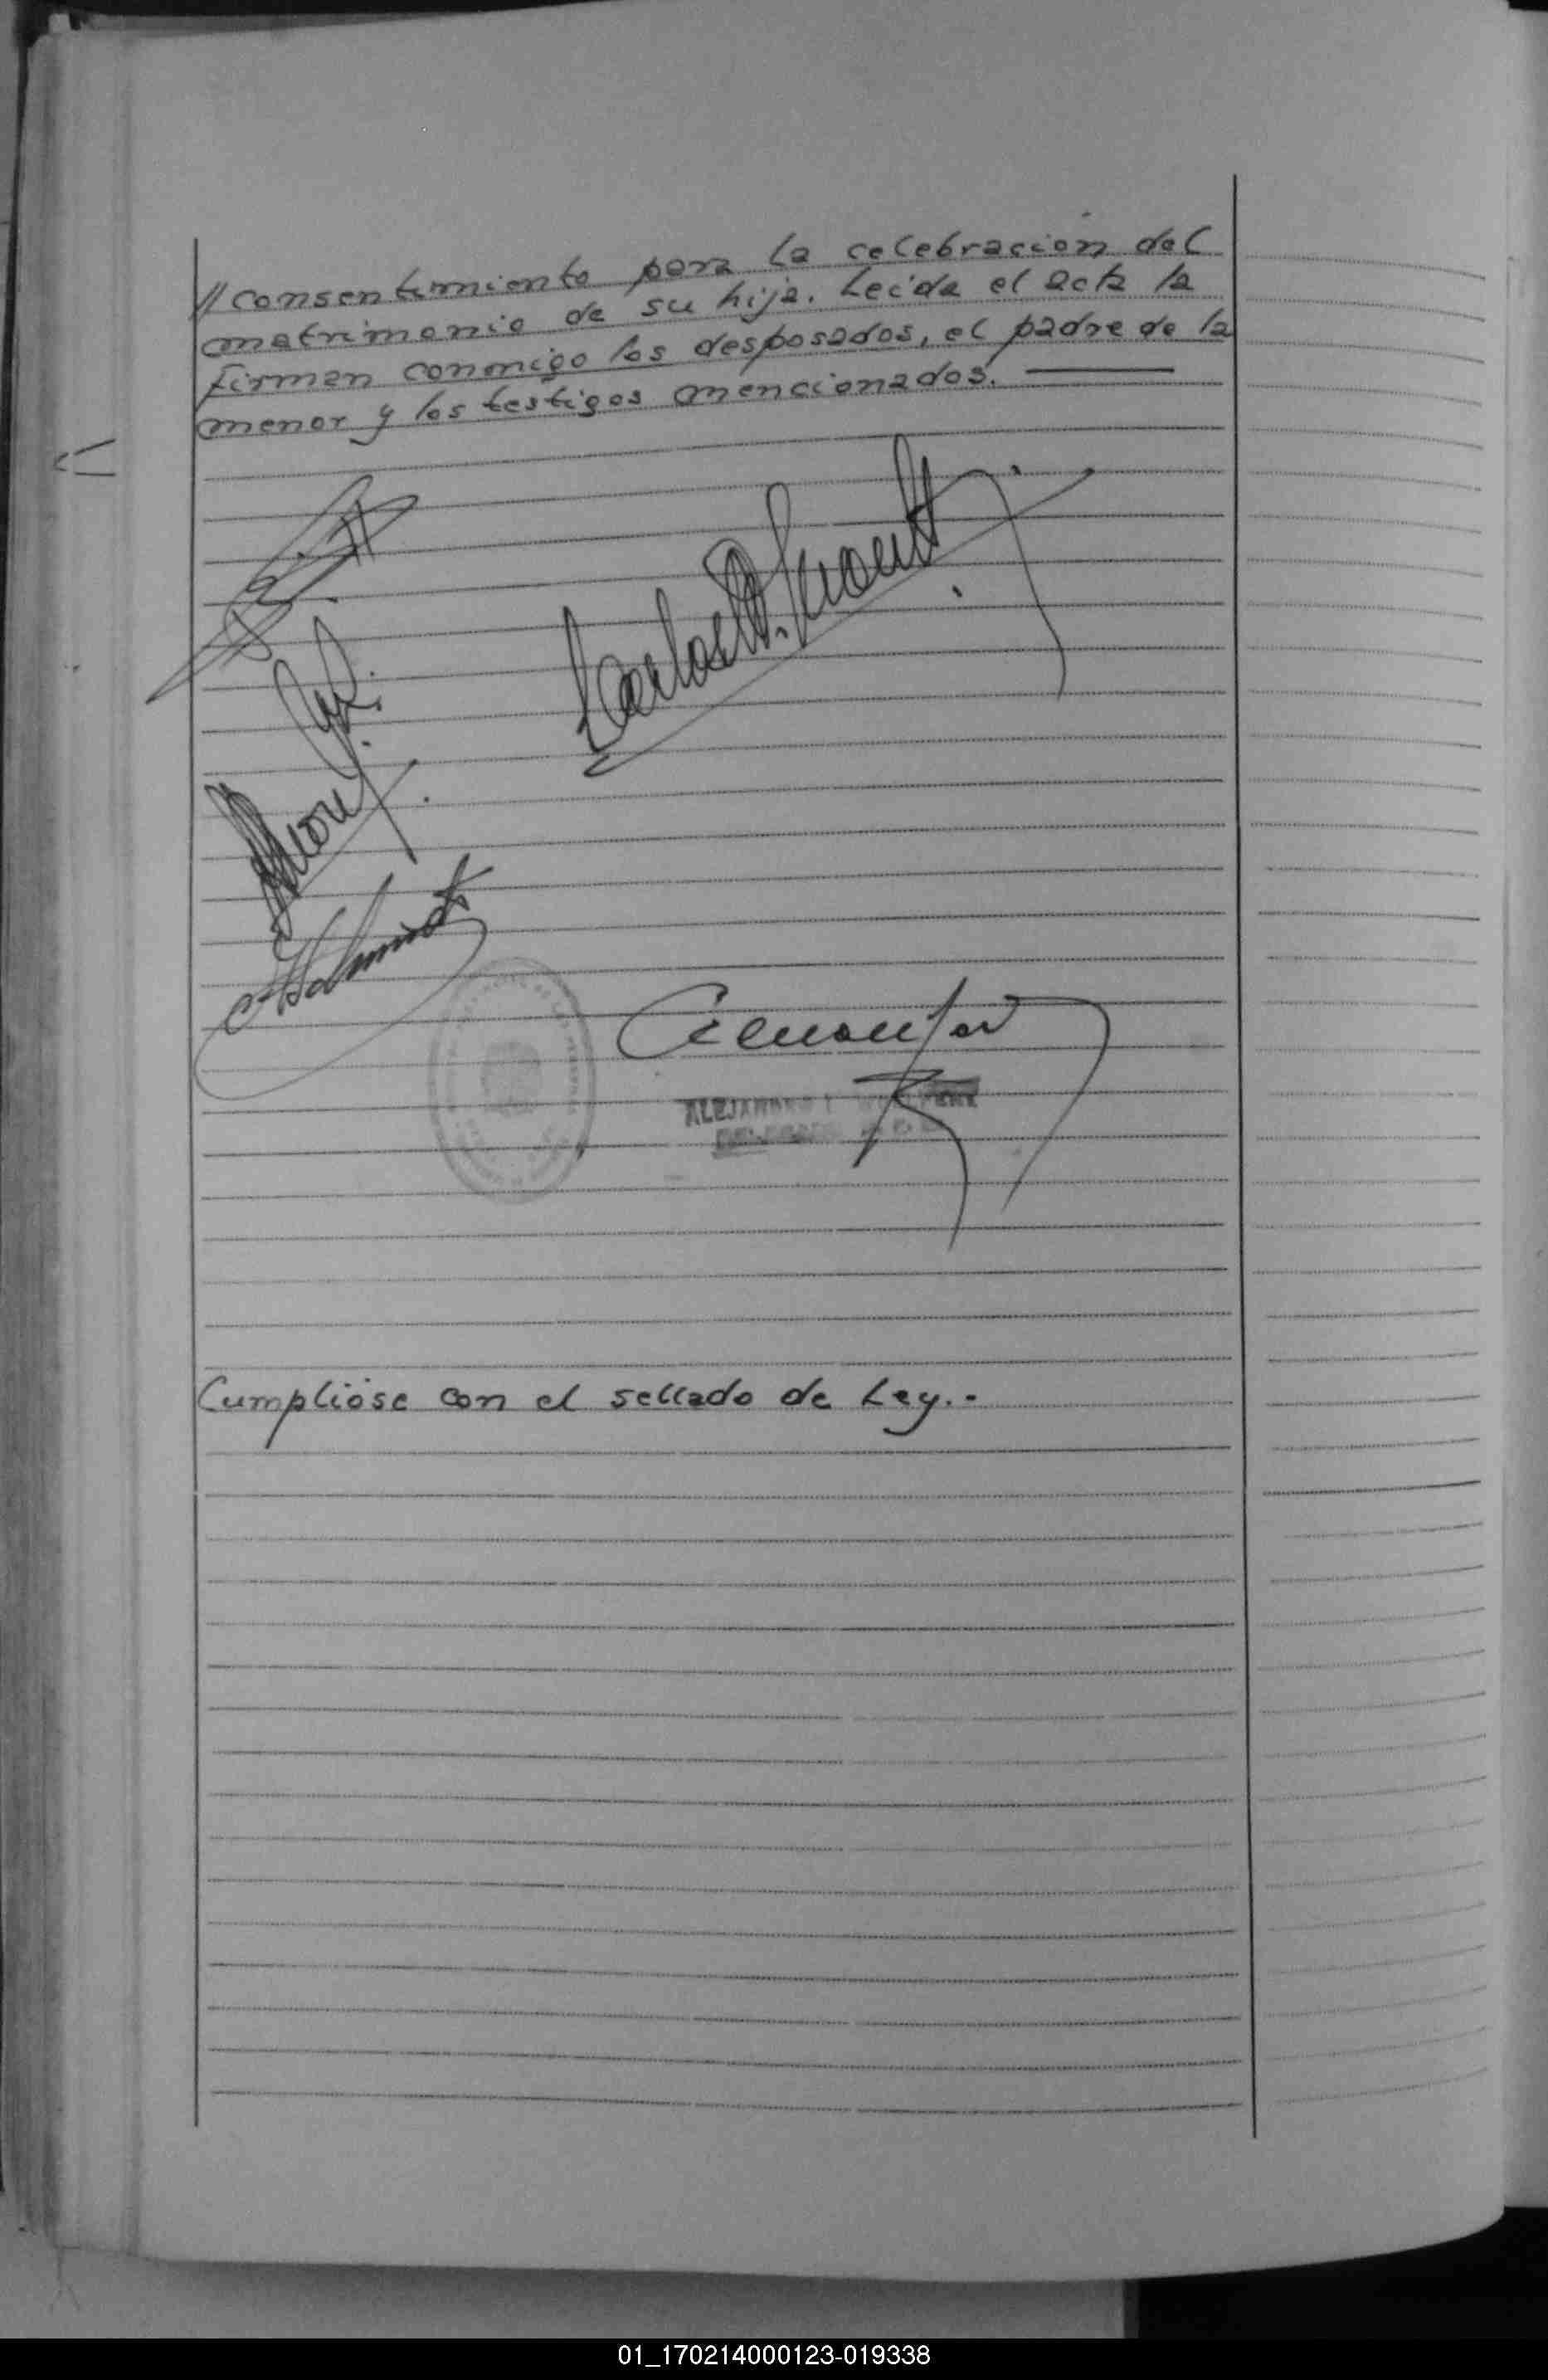 // consentimiento para la celebracion del
matrimonio de su hija. Leida el acta la
firman conmigo los desposados, el padre de la
menor y los testigos mencionados.
Carlos
ALEJANDRO
Cumplióse con el sellado de Ley.-
01_170214000123-019338